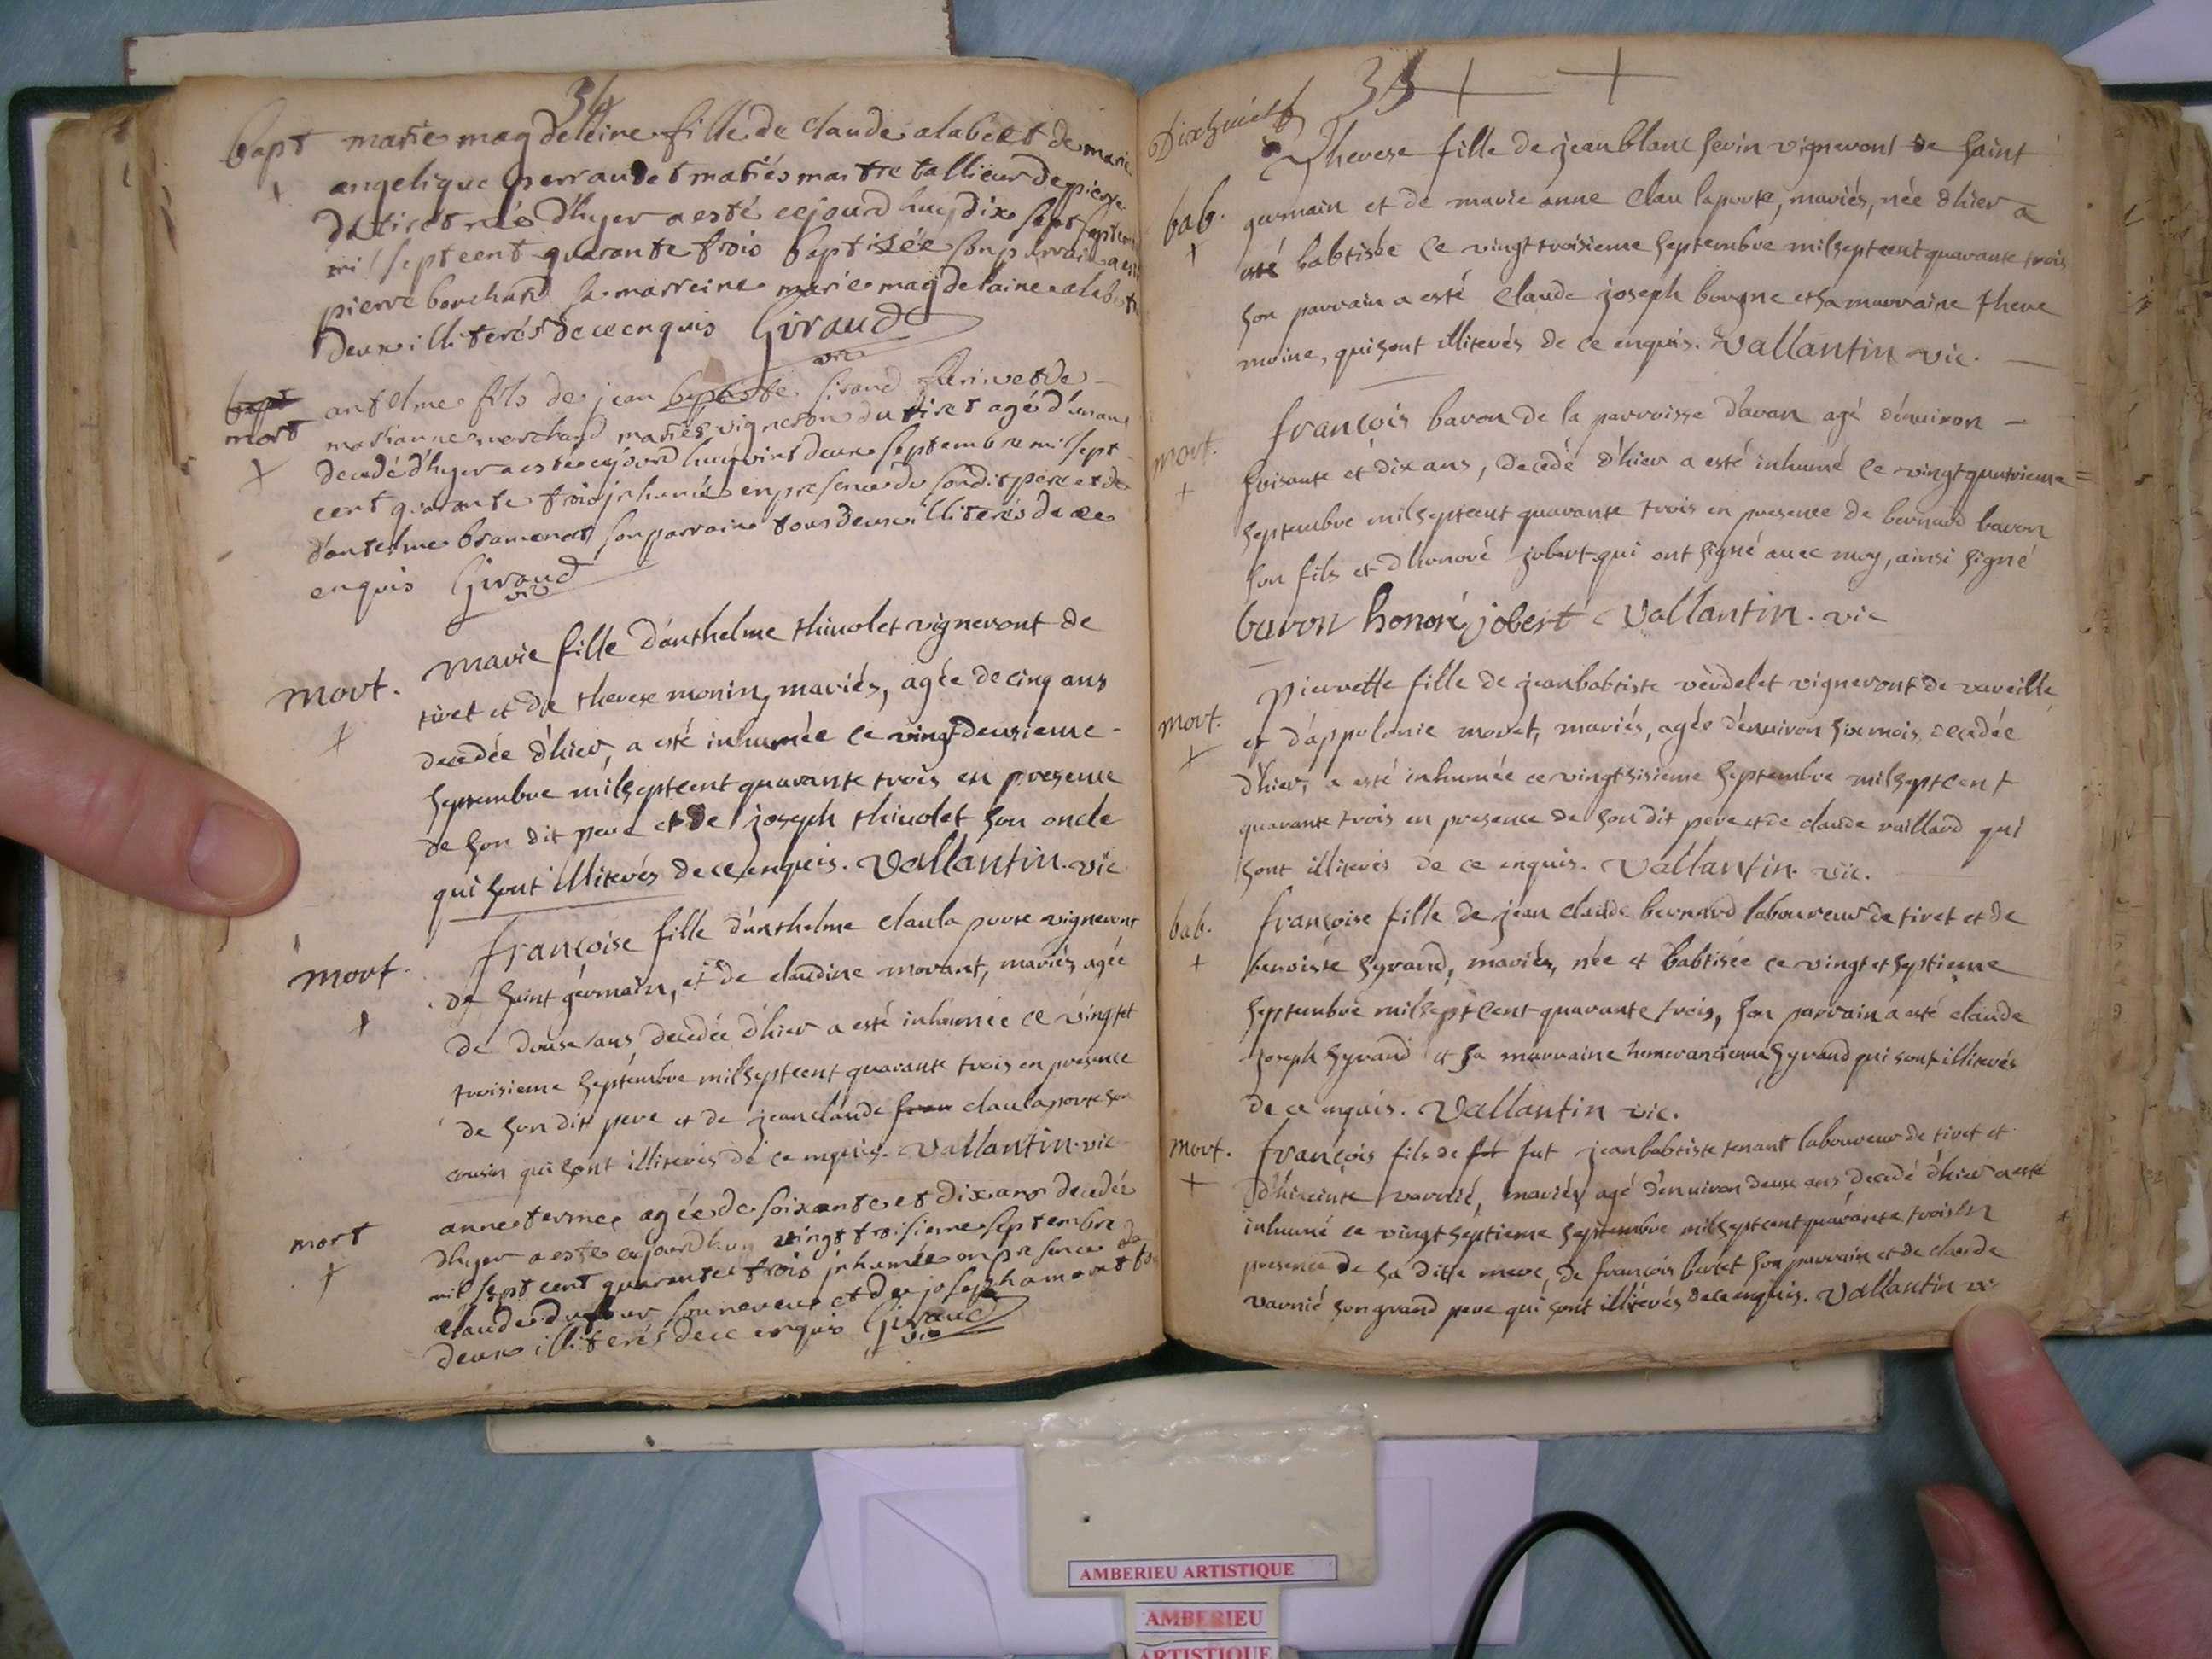 34
bapt marie magdeleine fille de claude alabert de marie
angelique perraudet mariés maitre tallieur de pierre
de tiret née d'hyer a esté cejourd huy dix sept septem
mil sept cent quarante trois baptisée son parrain a esté
pierre bouchard sa marreine marie magdelaine
deux illiterés de ce enquis Giraud
vic
bapt
mort antelme fils de jean baptiste sirand et de
marianne marchand mariés vigneron du tiret agé d'un an
decedé d'hyer a esté cejourd huy vint deux septembre mil sept
cent quarante trois inhumé en presence du sondit pere et de
d'antelme bramerel son parrain tous deux illiterés de ce
enquis Giraud
vic
mort. marie fille d'anthelme thiuolet vigneront de
tiret et de therese monin, mariés, agée de cinq ans
decedée d'hier, a esté inhumée ce vingt deusieme
septembre mil septcent quarante trois en presence
de son dit pere et de joseph thiuolet son oncle
qui sont illiterés de ce enquis. Vallantin. vic
mort. françoise fille d'anthelme claula porte vigneront
de saint germain, et de claudine morant, mariés, agée
de douse ans decedée d'hier a esté inhumée ce vingt et
troisieme septembre mil septcent quarante trois en presence
de son dit pere et de jean claude claulaporte son
cousin qui sont illiterés de ce enquis. Vallantin. vic
mort anne terme agée de soixante et dix ans decedée
dhyer a esté cejourdhuy vingt troisieme septembre
mil sept cent quarante trois inhumée en presence de
claude dufour son neveu et de joseph amoret tous
deux illiterés de ce enquis Giraud
vic
35
Dixhuict
Therese fille de jean blanc serin vigneront de saint
bab. germain et de marie anne clau laporte, mariés, née d'hier a
esté babtisée ce vingt troisieme septembre mil septcent quarante trois
son parrain a esté claude joseph borgne et sa marraine there
moine, qui sont illiterés de ce enquis. Vallantin vic.
mort. françois baron de la parroisse d'avan agé d'enuiron
soisante et dix ans, decedé d'hier a esté inhumé ce vingt quatrieme
septembre mil septcent quarante trois en presence de bernard baron
son fils et d'honoré jobert qui ont signé auec moy, ainsi signé
baron honoré jobert Vallantin. vic
mort. pierrette fille de jean babtiste verdelet vigneront de vareille
et d'appolonie moret, mariés, agée d'enuiron six mois, decedée
d'hier, a esté inhumée ce vingt sisieme septembre mil septcent
quarante trois en presence de son dit pere et de claude vaillard qui
sont illiterés de ce enquis. Vallantin. vic.
bab. françoise fille de jean claude bernard laboureur de tiret et de
benoiste syrand, mariés, née et babtisée ce vingt et septieme
septembre mil septcent quarante trois, son parrain a esté claude
joseph syrand et sa marraine syrand qui sont illiterés
de ce enquis. Vallantin vic.
mort. françois fils de fut jean babtiste tenant laboureur de tiret et
d'hiacinte varnié, mariés, agé d'enuiron deux ans decedé d'hier a esté
inhumé ce vingt septieme septembre mil septcent quarante trois en
presence de sa ditte mere, de françois son parrain et de claude
varnié son grand pere qui sont illiterés de ce enquis. Vallantin vic
AMBERIEU ARTISTIQUE
AMBERIEU
ARTISTIQUE